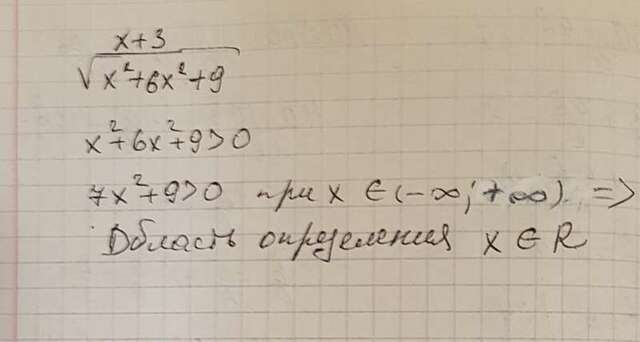 x+3
√x²+6x²+9
x²+6x²+9>0
7x²+9>0 при x ∈(-∞;+∞) =>
Область определения x ∈ R